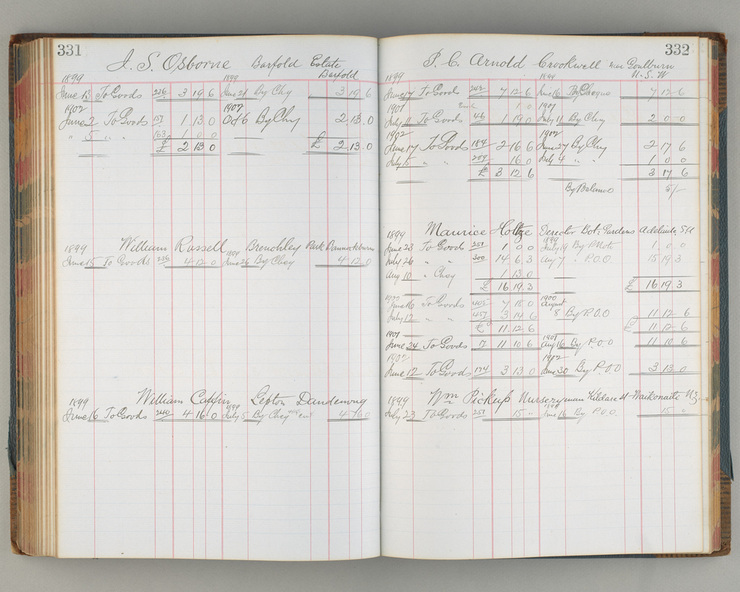 331
J. S. Osborne Barfold Estate
Barfold
1899 1899
June 13 To Goods 226 3 19 6 June 21 By Chq 3 19 6
1902 1902
June 2 To Goods 157 1 13 0 Oct 6 By Chq 2 13 0
" 5 " " 163 1 0 0
£ 2 13 0 £ 2 13 0
1899 William Russell Brenchley Park Dunnockburn
June 15 To Goods 226 4 12 0 1899 June 26 By Chq 4 12 0
1899 William Lepton Dandenong
June 16 To Goods 240 4 16 0 1899 July 5 By Chq 4 16 0
332
P. C. Arnold Crookwell near Goulburn
N. S. W
1899 1899
June 17 To Goods 242 7 12 6 June 16 By Cheque 7 12 6
1901 1 0 1901
July To Goods 46 1 19 0 July 11 By Chq 2 0 0
1902 1902
June 17 To Goods 184 2 16 6 June 27 By Chq 2 17 6
July " " 209 16 0 July 4 " " 1 0 0
£ 3 12 6 3 17 6
By Balance 5/-
1899 Maurice Holtze Director Bot. Gardens Adelaide S A
June 23 To Goods 251 1 0 0 1899 July 19 By P Note 1 0 0
July 26 " " 300 14 6 3 Aug 7 " P.O.O 15 19 3
Aug 10 " Chq 1 13 0
£ 16 19 3 £ 16 19 3
1900 1900
June 16 To Goods 405 7 18 0 August
July 12 " " 457 3 14 6 8 By P.O.O 11 12 6
£ 11 12 6 £ 11 12 6
1901 1901
June 24 To Goods 17 11 10 6 Aug 16 By P.O.O 11 10 6
1902 1902
June 12 To Goods 174 3 13 0 June 30 By P.O.O 3 13 0
1899 Wm Pickup Nurseryman Kildare St Waikonaite N.Z
July 23 To Goods 251 15 " 1899 June 16 By P.O.O. 15 0